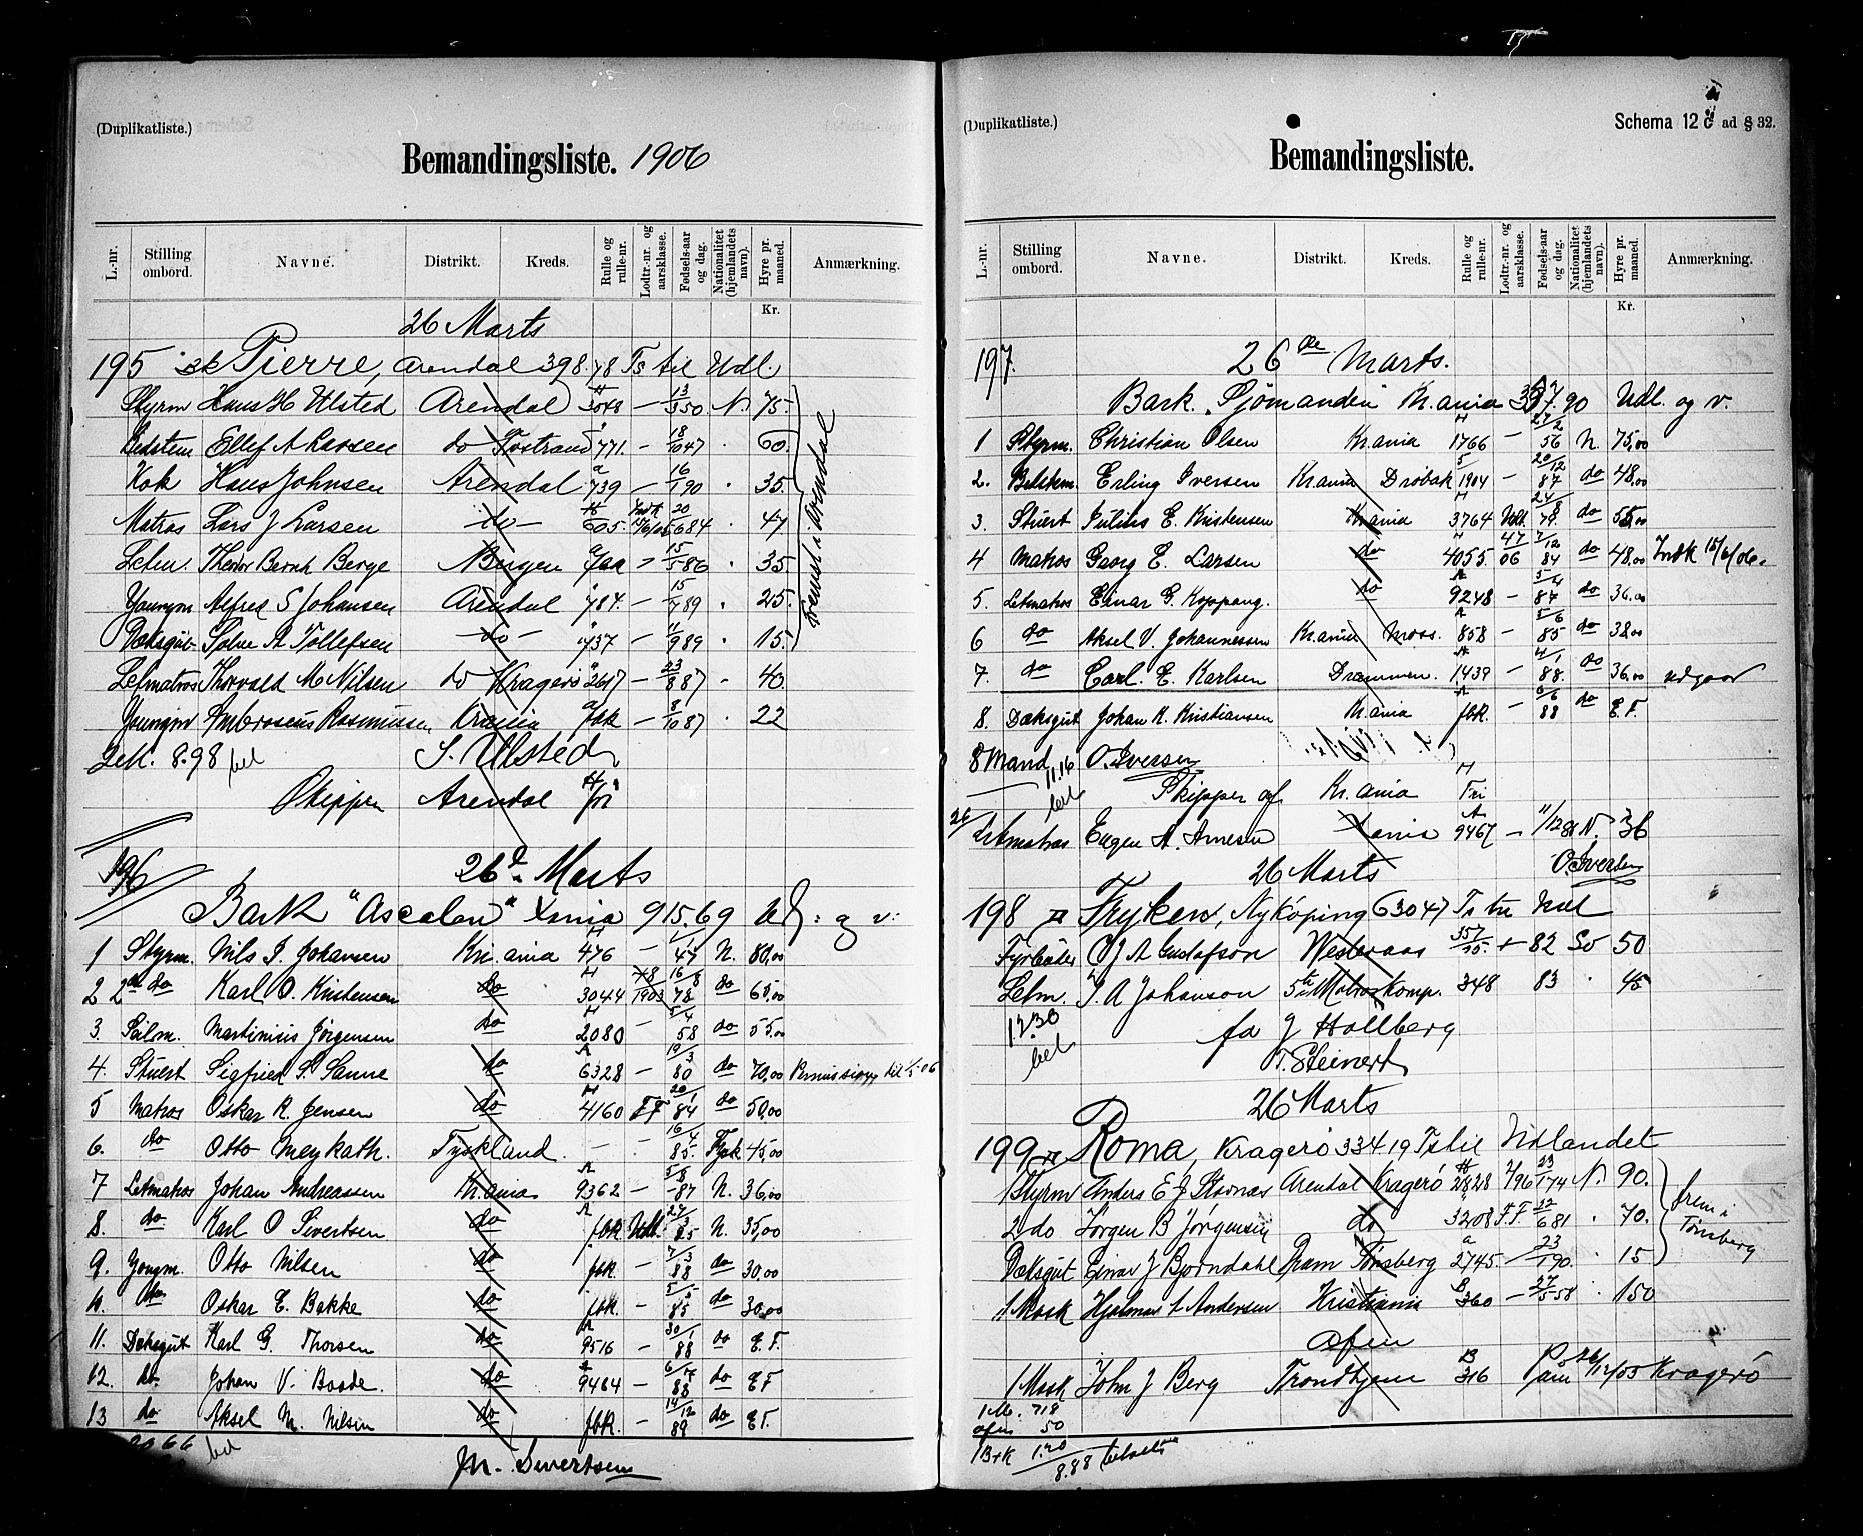 (Duplikatliste.)
Bemandingsliste. 1906
L.-nr. Stilling ombord. Navne. Distrikt. Kreds. Rulle og rulle-nr. Lodtr.-nr. og aarsklasse. Fødsels-aar og dag. Nationalitet (hjemlandets navn). Hyre pr. maaned. Anmærkning.
Kr.
26 Marts
195 Pierre, Arendal 398.78 Ts til Udl.
Styrm Hans H Ulsted Arendal 3048 — 13/3 50 N. 75.
Ellef A Larsen do Tostrand 771. — 18/10 47 60.
Kok Hans Johnsen Arendal 739 — 16/1 90 35.
Matros Lars J Larsen do 605. 20/6 84 47
Letm. Theodor Bernh Berge Bergen — 15/5 86 35
Youngm Alfred S Johansen Arendal 784. — 15/7 89 25.
Dæksgut Salve A Tollefsen do 437 — 11/9 89 15.
Letmatros Thorvald M Nilsen do Kragerø 2617 — 23/8 87 40.
Youngm Ambrosius Rasmussen Kr.ania fbk — 8/10 87 22
fremst i Arendal
8.98 bet S. Ulsted
Skipper Arendal fri
196
26d Marts
Bark "Ascalon" Xania 915.69 Udl: og v:
1 Styrm. Nils J. Johansen Kr.ania 476 — 47 N. 80,00
2 2den do Karl O. Kristensen do 3044 1903 16/8 78 do 65,00
3. Seilm. Martinius Jørgensen do 2080 — 5/4 58 do 55,00
4. Stuert Sigfried S. Sanne do 6328 — 19/3 80 do 70,00 Permission til 1/5 06
5 Matros Oskar R. Jensen do 4160 FF 20/1 84 do 50,00
6. do Otto Meykath. Tyskland. — - 16/4 85. Tysk 45,00
7 Letmatros Johan Andreassen Kr.ania 9362 — 5/8 87 N. 36,00
8. do Karl O Sivertsen do fbk. Udl. 85 N. 35,00
9. Yongm. Otto Nilsen do fbk. — 7/3 88 do 30,00
do Oskar E. Bakke do fbk. — 85 do 30,00
11. Dæksgut Karl G. Thorsen do 9516 — 30/1 88 do E. F.
12. do. Johan V. Baade. do 9484 — 88 do E F
13 do Aksel M. Nilsen do fbk. — 14/12 89 do E F.
bet
M. Sivertsen
(Duplikatliste.)
Schema 12 ad § 32.
Bemandingsliste.
L.-nr. Stilling ombord. Navne. Distrikt. Kreds. Rulle og rulle-nr. Lodtr.-nr. og aarsklasse. Fødsels-aar og dag. Nationalitet (hjemlandets navn). Hyre pr. maaned. Anmærkning.
Kr.
197. 26de Marts.
Bark. Sjømanden Kr.ania Udl. og v.
1 Styrm. Christian Olsen Kr.ania 1766 — 27/2 56 N. 75,00
2. Erling Iversen Kr.ania Drøbak 1904 — 20/12 87 do 48,00
3. Stuert Julius E. Kristensen Kr.ania 3764 Udl. 24/8 79. do 55,00
4 Matros Georg E. Larsen do 4055. 47/06 7/12 84 do 48,00 Indk 15/6/06.
5. Letmatros Einar G. Koppang. do 9248 — 5/4 87 do 36.00
6 do Aksel V. Johannessen Kr.ania Moss. 858 — 5/6 85 do 38.00
7. do Carl. E. Karlsen Drammen. 1439 — 4/1 88. do 36,00 udgaar
8. Dæksgut Johan K. Kristiansen Kr.ania fbk. — 6/6 88 do E. F.
8 Mand O. Iversen
11.16 bet Skipper af Kr.ania Fri
26/ Letmatros Eugen A. Arnesen Xania 9467 — 11/12 86 N. 36
O. Iversen
26 Marts
198 Fryken, Nykøping 630.47 Ts til Udl
Fyrbøder O J A Gustafson Westeraas 357/95. + 82 Sv 50
Letm. J. A Johanson 5te Matroskomp. 348 83 . 45
12.30 bet fa J Hallberg
T. Steinert
26 Marts
199 Roma, Kragerø 334.19 Ts til Udlandet
1 Styrm Anders E J Stavnæs Arendal Kragerø 2828 7/96 23/1 74 N. 90.
2 do Jørgen B Jørgensen do 3208 F.F. 22/6 81 . 70.
Dæksgut Einar J Bjørndahl Dram Tønsberg 2745. — 23/1 90. . 15
frem i Tønsberg
1 Mask Hjalmar L Andersen Kristiania 360 — 27/5 58 . 150
Afm
1 Mask John J Berg Trondhjem 316 Paam 16/12/05 Kragerø
1 M. 718
afm 50
1.20
8.88 betalt